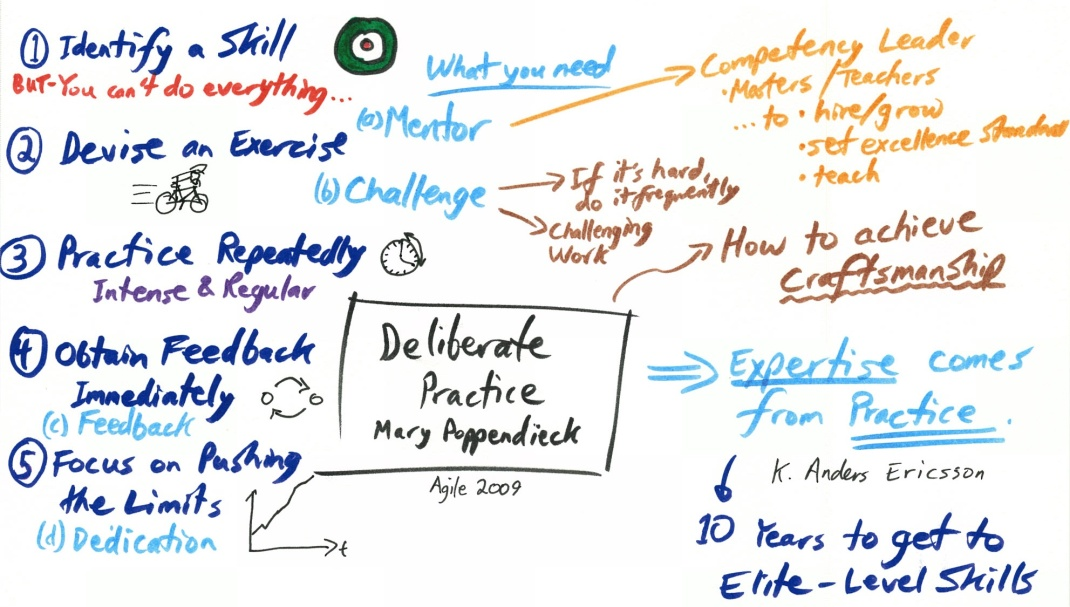 ① Identify a Skill
BUT-You can't do everything...
② Devise an Exercise
③ Practice Repeatedly
Intense & Regular
④ Obtain Feedback
Immediately
(c) Feedback
⑤ Focus on Pushing
the Limits
(d) Dedication
t
What you need
(a) Mentor
(b) Challenge
If it's hard,
do it frequently
Challenging
Work
Competency Leader
• Masters / Teachers
...to • hire/grow
• set excellence standard
• teach
How to achieve
Craftsmanship
Deliberate
Practice
Mary Poppendieck
Agile 2009
Expertise comes
from Practice.
K. Anders Ericsson
10 Years to get to
Elite-Level Skills